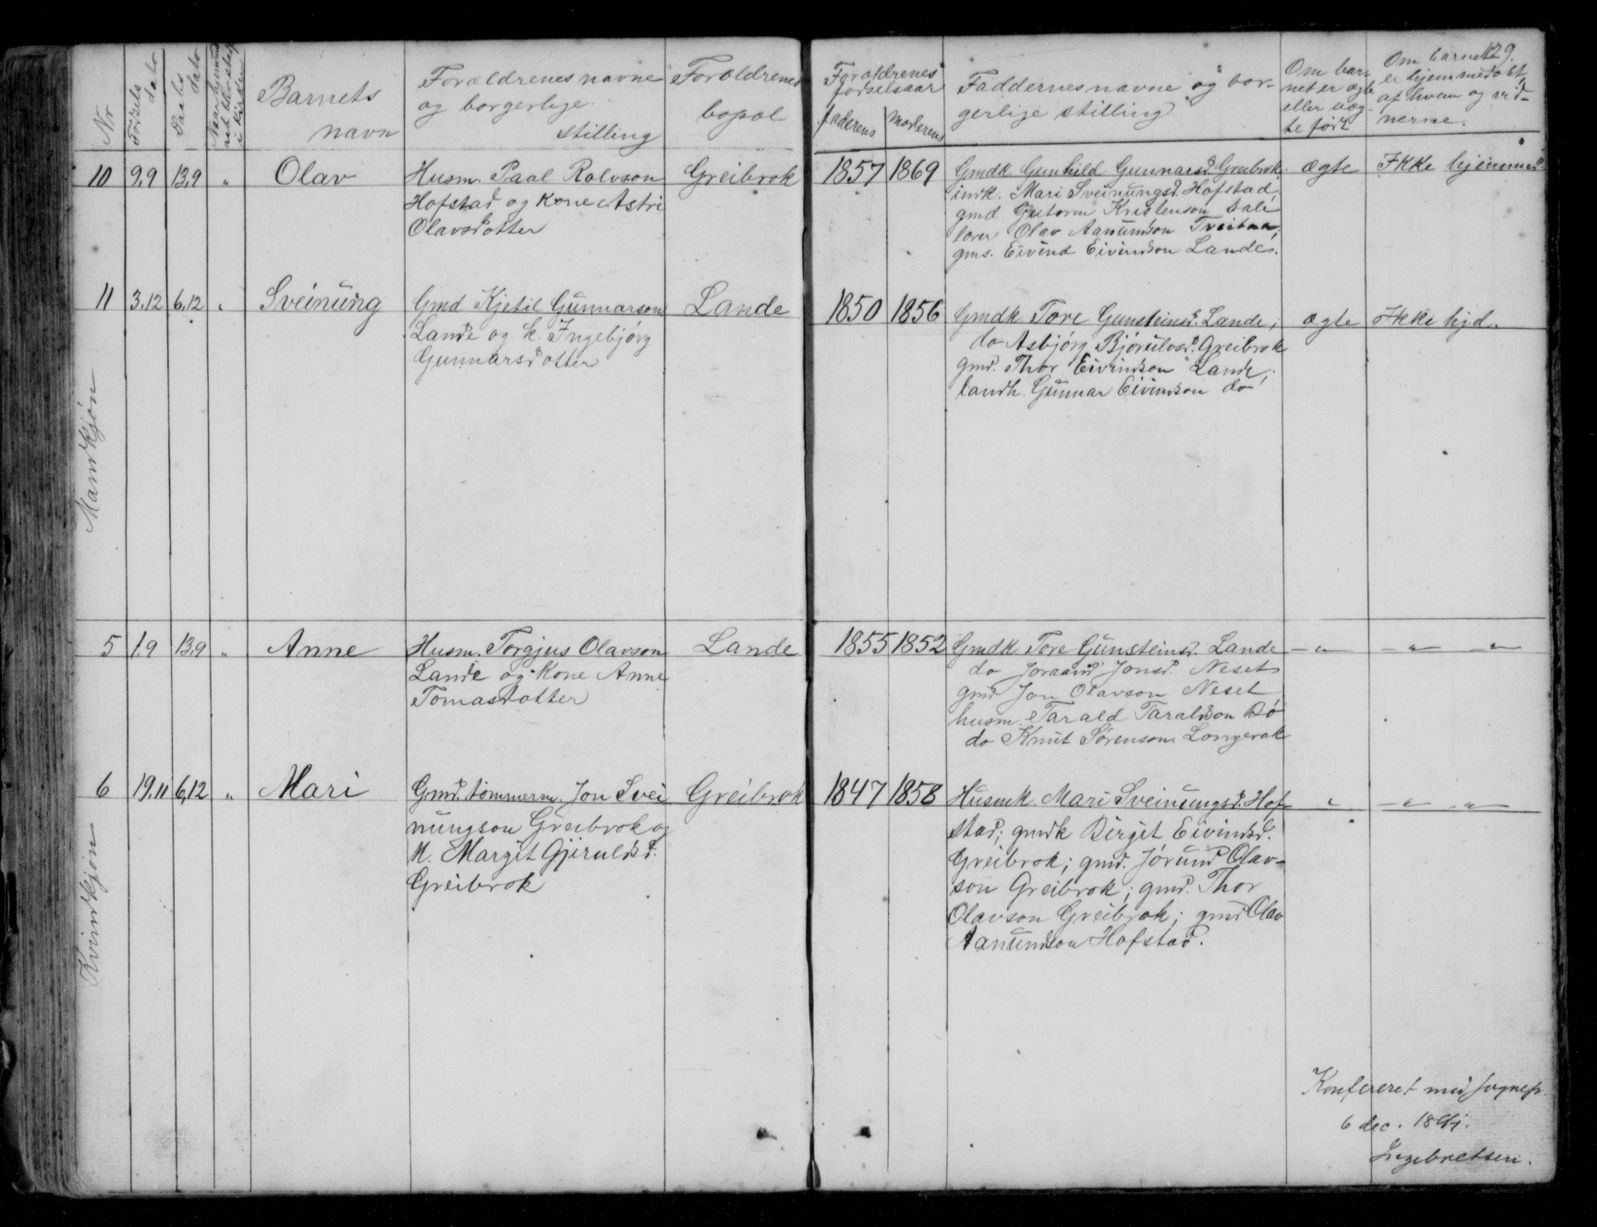 129.
Nr. Fødsels dato Daabs dato
Barnets navn
Forældrenes navne og borgerlige stilling
Forældrenes bopæl
Forældrenes fødselsaar
faderens moderens
Faddernes navne og borgerlige stilling
Om barnet er ægte eller uægte født
Om barnet er hjemmedøbt, af hvem og vidnerne.
Mandkjøn
10 9,9 13,9 " Olav Husm. Paal Rolvson Greibrok 1857 1869 Gmdk Gunhild Gunnarsd. Greibrok ægte Ikke hjemmed.
Hofstad og Kone Astri
Olavsdotter
indk. Mari Sveinungsd. Hofstad,
gmd. Guttorm Kristenson Dale
lærer Olav Aanundson Tveitan,
gms. Eivind Eivindson Lande.
11 3,12 6,12 " Sveinung Gmd Kjetil Gunnarson Lande 1850 1856 Gmdk Tore Gunsteinsd. Lande, ægte Ikke hjd.
Lande og k. Ingebjørg
Gunnarsdotter
do Asbjørg Bjørulvsd. Greibrok
gmd. Thor Eivindson Lande,
landh. Gunnar Eivindson do
Kvindkjøn
5 1,9 13,9 " Anne Husm. Torgjus Olavson Lande 1855 1852 Gmdk Tore Gunsteinsd. Lande – " – – " – " –
Lande og Kone Anne
Tomasdotter
do Joraand Jonsd. Neset
gmd Jon Olavson Neset
husm. Tarald Taraldson Bø
do Knut Sørenson Longerak
6 19,11 6,12 " Mari Gmd. tømmerm. Jon Svei Greibrok 1847 1858 Husmk. Mari Sveinungsd. Hof- " – " – " –
nungson Greibrok og
M. Margit Gjeruldsd.
Greibrok
stad; gmdk Birgit Eivindsd.
Greibrok; gmd. Jørund Olav-
son Greibrok; gmd. Thor
Olavson Greibjok; gmd Olav
Aanundson Hofstad.
Konfereret med sognep.
6 dec. 1891.
Ingebretsen.